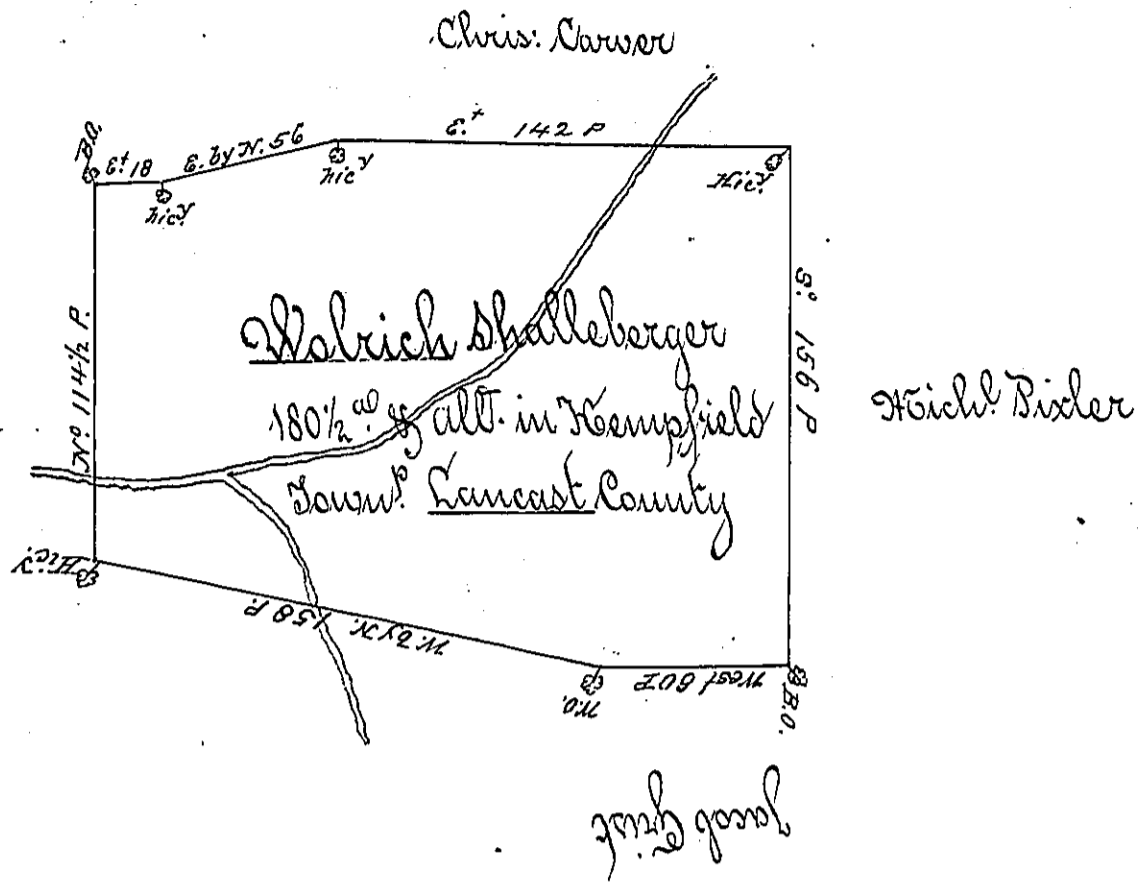 Chris: Carver
B.O.
E.t 18
E. by N. 56
E.t 142 P
hic.y
hic.y
Hic.y
So. 156 P
No. 114 1/2 P.
Wolrich Shalleberger
180 1/2 a. & all. in Hempfield
Town.p Lancast County
Mich.l Pixler
Hic.y
W. by N. 158 P.
West 60 P
W.O.
B.O.
Jacob Grist